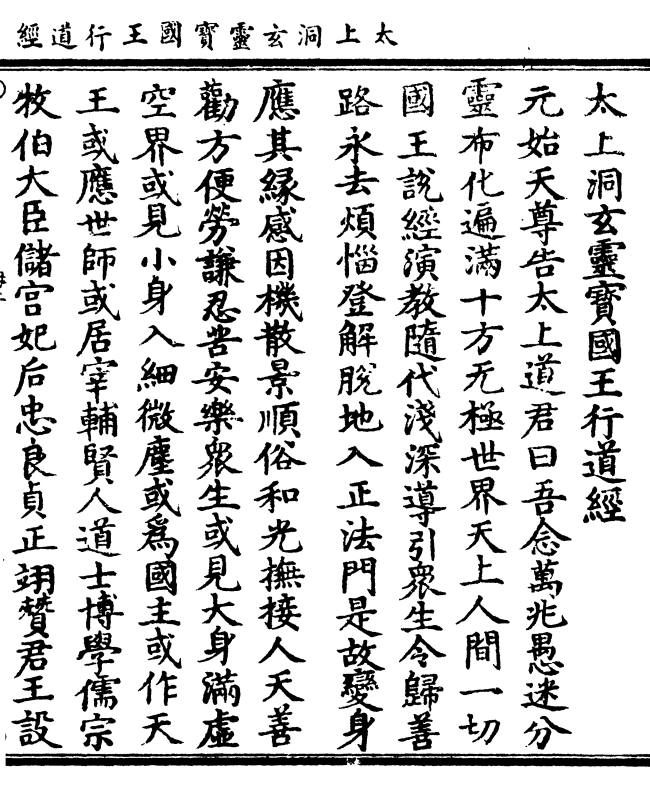 太上洞玄靈寶國王行道經
太上洞玄靈寶國王行道經
元始天尊告太上道君曰吾念萬兆愚迷分
靈布化遍滿十方无極世界天上人間一切
國王說經演教隨代淺深導引衆生令歸善
路永去煩惱登解脫地入正法門是故變身
應其緣感因機散景順俗和光撫接人天善
勸方便勞謙忍苦安樂衆生或見大身滿虛
空界或見小身入細微塵或為國主或作天
王或應世師或居宰輔賢人道士博學儒宗
牧伯大臣儲宫妃后忠良貞正翊贊君王設